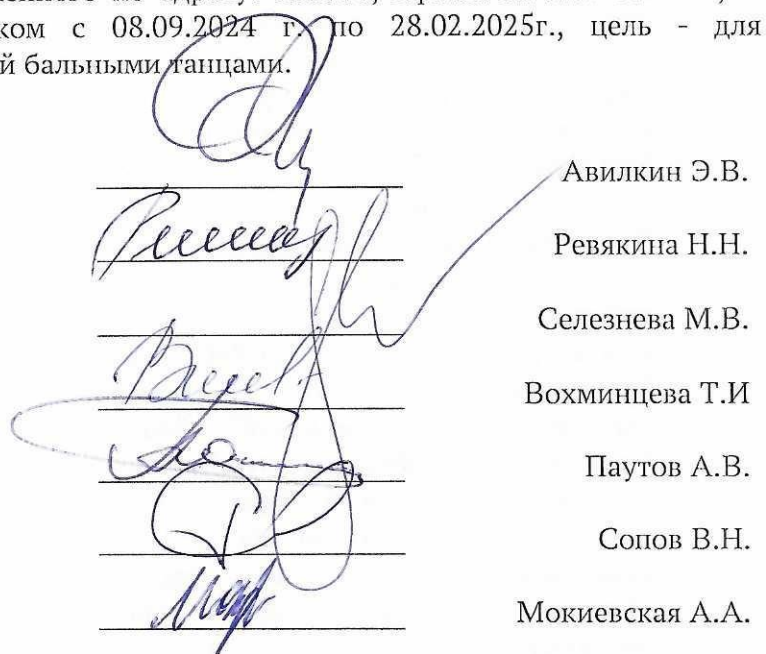 ком с 08.09.2024 г. по 28.02.2025г., цель - для
й бальными танцами.
Авилкин Э.В.
Ревякина Н.Н.
Селезнева М.В.
Вохминцева Т.И
Паутов А.В.
Сопов В.Н.
Мокиевская А.А.